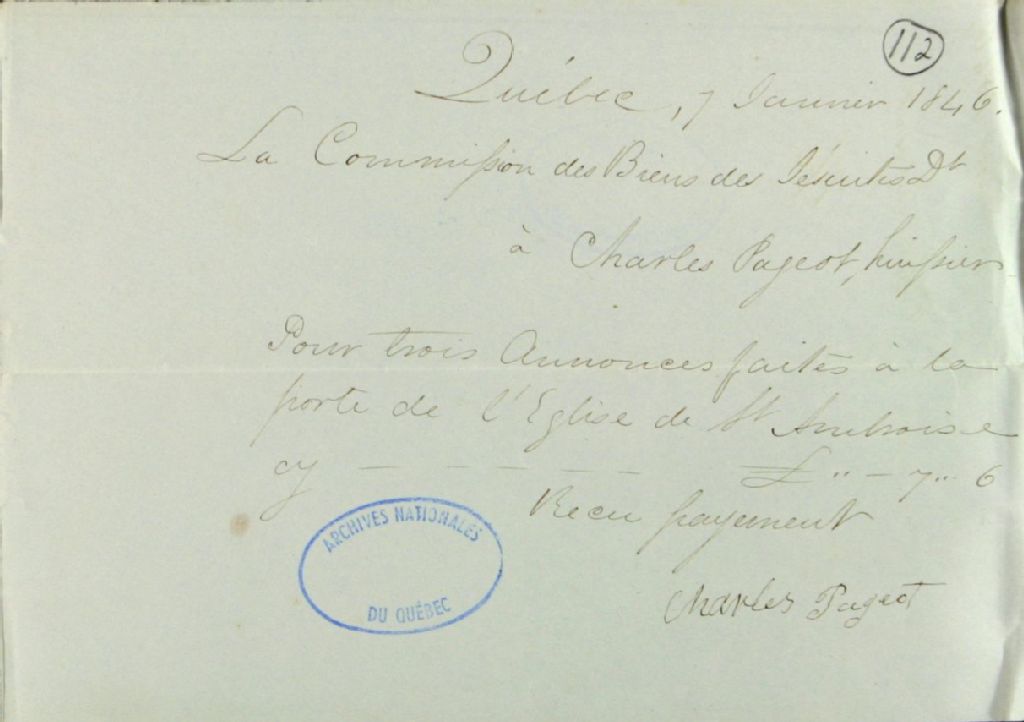 112
Québec, 7 Janvier 1846.
La Commission des Biens des Jésuites Dt
à Charles Pageot, huissier
Pour trois Annonces faites à la
porte de l'Eglise de St Ambroise
cy — — — — — £ " — 7 " 6
Recu payement
Charles Pageot
ARCHIVES NATIONALES
DU QUÉBEC